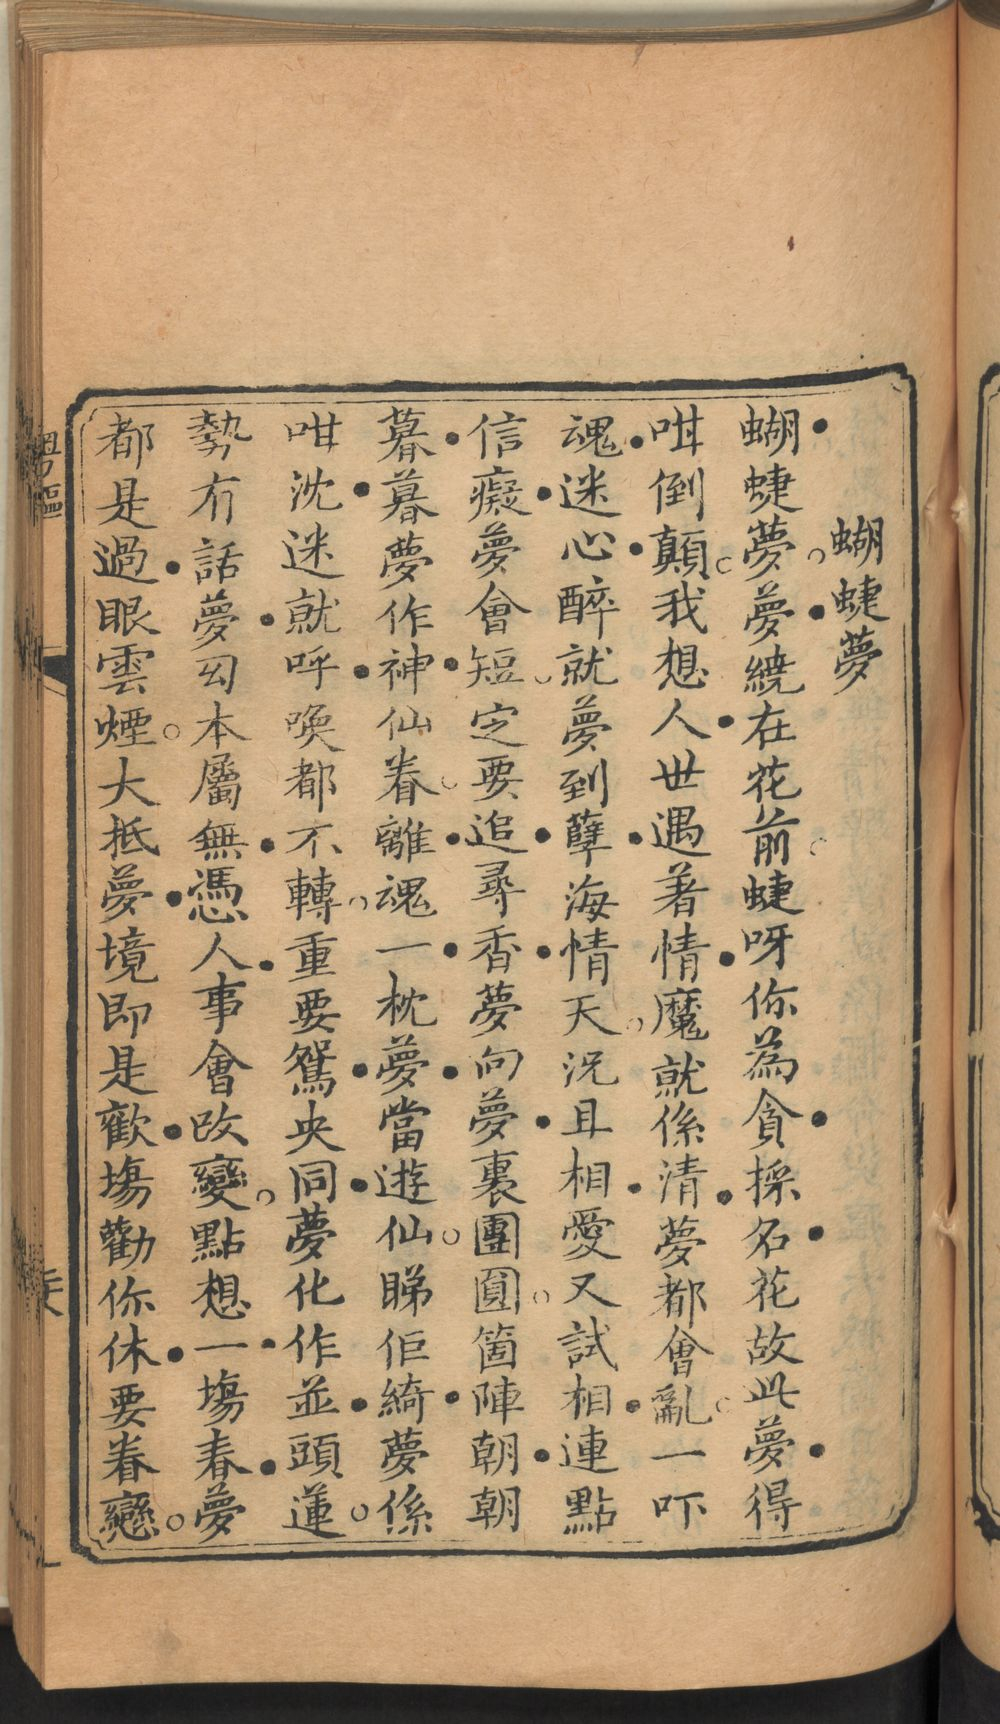 蝴蜨夢
蝴蜨夢夢繞在花前蜨呀你為貪採名花故此夢得
咁倒顛我想人世遇著情魔就係清夢都會亂一吓
魂迷心醉就夢到孽海情天況且相愛又試相連點
信癡夢會短定要追尋香夢向夢裏團圓箇陣朝朝
暮暮夢作神仙眷離魂一枕夢當遊仙睇佢綺夢係
咁沈迷就呼喚都不轉重要鴛央同夢化作並頭蓮
勢冇話夢幻本屬無憑人事會改變點想一塲春夢
都是過眼雲煙大抵夢境即是歡塲勸你休要眷戀
粵謳